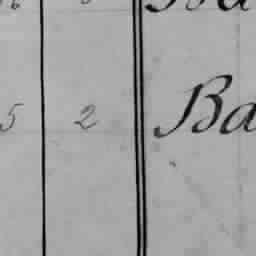 5 2 Ba